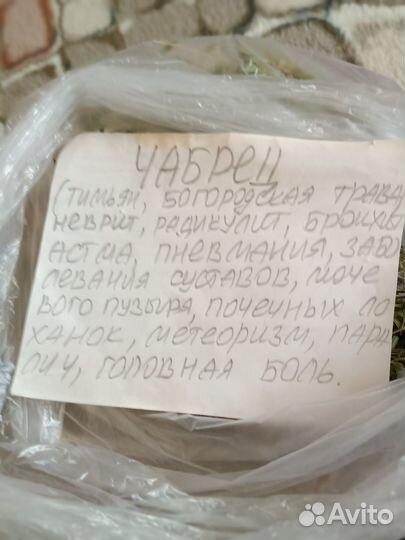 ЧАБРЕЦ
(ТИМЬЯН, БОГОРОДСКАЯ ТРАВА,
НЕВРИТ, РАДИКУЛИТ, БРОНХИТ
АСТМА, ПНЕВМАНИЯ, ЗАБО
ЛЕВАНИЯ СУСТАВОВ, МОЧЕ
ВОГО ПУЗЫРЯ, ПОЧЕЧНЫХ ЛО
ХАНОК, МЕТЕОРИЗМ, ПАРА
ЛИЧ, ГОЛОВНАЯ БОЛЬ.
Avito